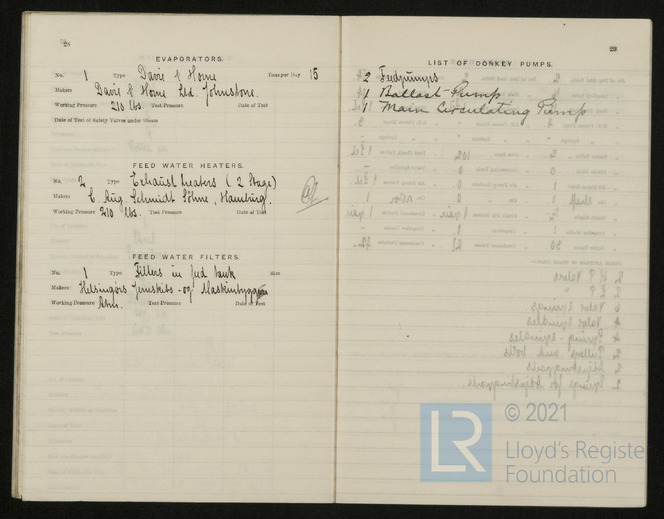 28
EVAPORATORS.
No. 1 Type Davie & Horne Tons per Day 15
Makers Davie & Horne Ltd. Johnstone.
Working Pressure 210 lbs. Test Pressure Date of Test
Date of Test of Safety Valves under Steam
FEED WATER HEATERS.
No. 2 Type Exhaust heaters (2 Stage)
Makers C. Aug. Schmidt Söhne, Hamburg.
Working Pressure 210 lbs. Test Pressure Date of Test
FEED WATER FILTERS.
No. 1 Type Filters in feed tank Size
Makers Helsingörs Jernskibs- og Maskinbyggeri
Working Pressure Atm. Test Pressure Date of Test
29
LIST OF DONKEY PUMPS.
2 Feedpumps
1 Ballast Pump
1 Main Circulating Pump
LR
© 2021
Lloyd's Register
Foundation